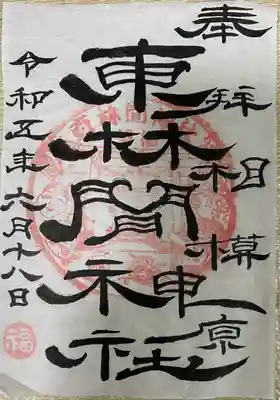 奉拝 相模原
東林間神社
令和五年六月十八日
福